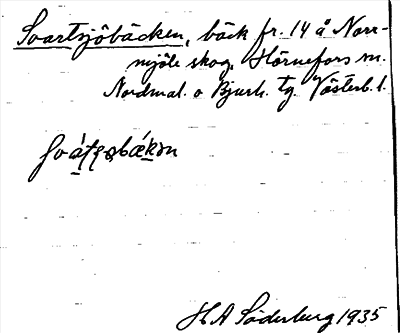 Svartsjöbäcken, bäck fr. 14 å Norr-
mjöle skog, Hörnefors sn.
Nordmal. o Bjurh. tg. Västerb. l.
H A Söderburg 1935